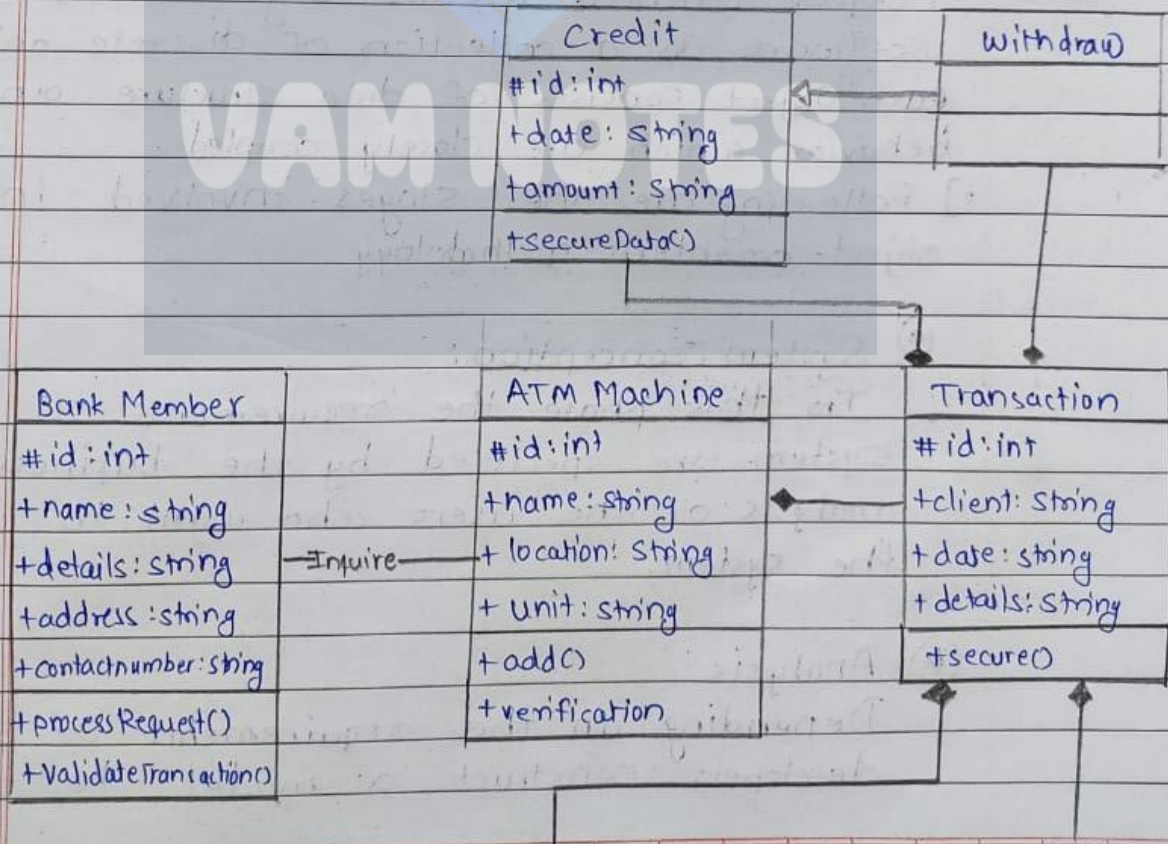 Credit
#id:int
+date: string
+amount: string
+secureData()
Withdraw
VAM NOTES
Bank Member
#id:int
+name: string
+details: string
+address: string
+contactnumber: string
+processRequest()
+ValidateTransaction()
Inquire
ATM Machine
#id:int
+name: string
+ location: string
+ unit: string
+add()
+verification
Transaction
#id:int
+client: string
+date: string
+details: string
+secure()